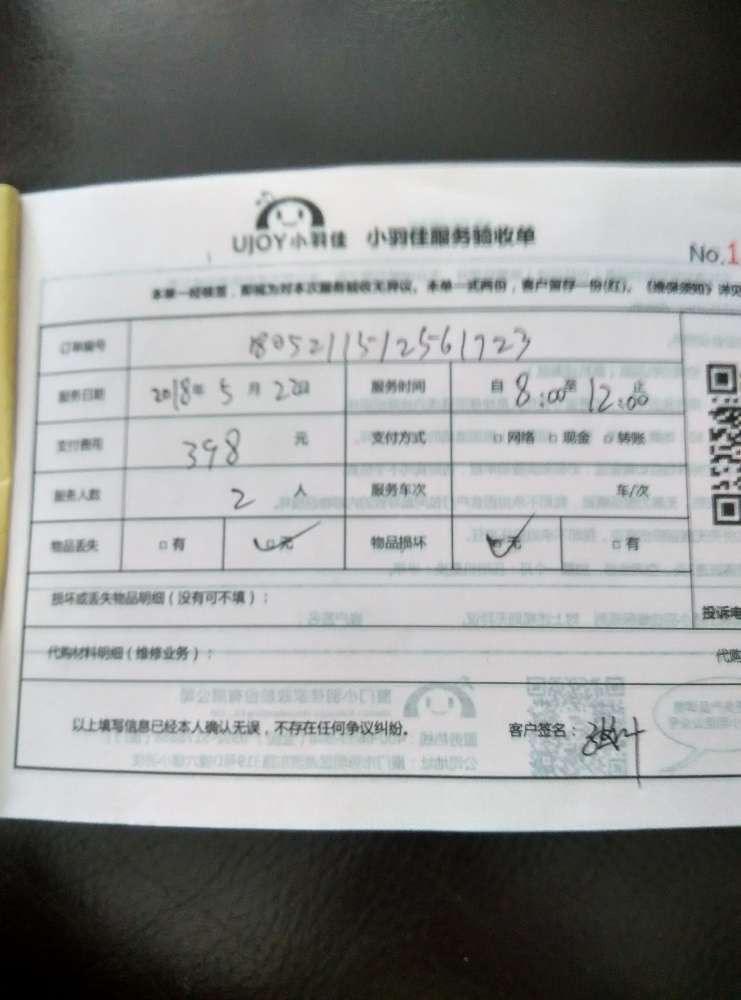 UJOY小羽佳 小羽佳服务验收单
No.1
本单一经核签，即视为对本次服务验收无异议。本单一式两份，客户留存一份(红)。《维保须知》详见
订单编号 1805211512561723
服务日期 2018年 5月 22日 服务时间 自 8:00至 12:00止
支付费用 398 元 支付方式 □网络 □现金 □转账
服务人数 2 人 服务车次 车/次
物品丢失 □有 □无 物品损坏 □无 □有
损坏或丢失物品明细（没有可不填）：
投诉电
代购材料明细（维修业务）：
代购
以上填写信息已经本人确认无误，不存在任何争议纠纷。 客户签名：